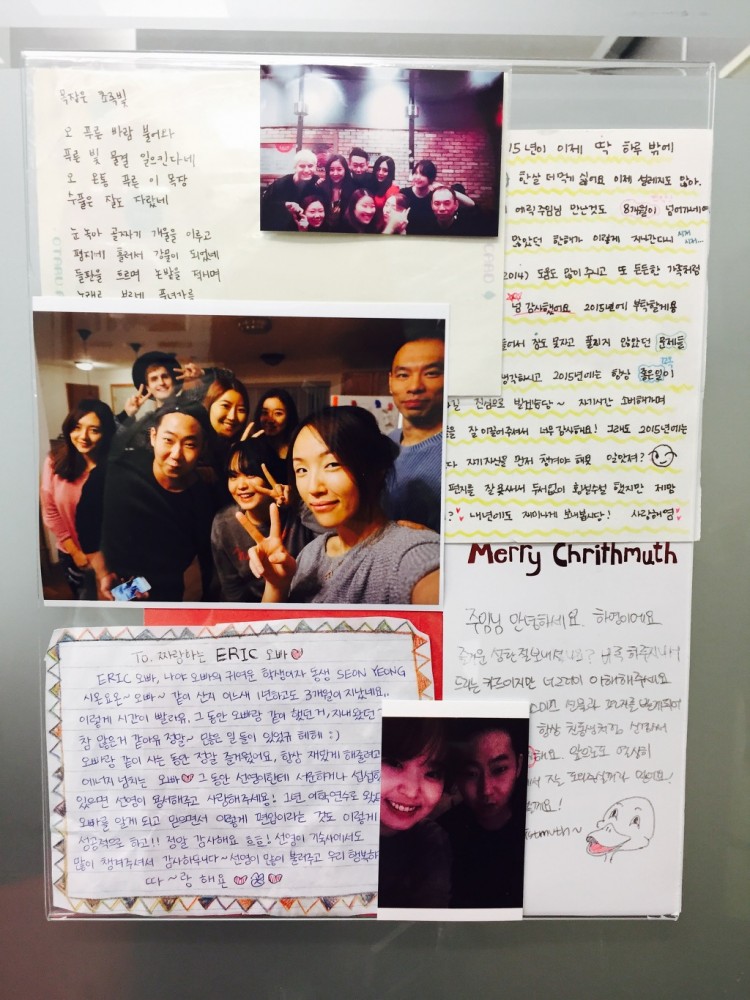 목장은 초록빛
오 푸른 바람 불어와
푸른 빛 물결 일으킨다네
오 온통 푸른 이 목장
수풀은 잘도 자랐네
눈 녹아 골짜기 개울을 이루고
평지에 흘러서 강물이 되었네
들판을 흐르며 논밭을 적시며
015년이 이제 딱 하루 밖에
한살 더 먹기 싫어요 이제 설레지도 않아.
에릭주임님 만난것도 8개월이 넘어가네여
많았던 한해가 이렇게 지나간다니
2014) 도움도 많이 주시고 또 든든한 가족처럼
넘 감사했어요 2015년에 부탁할게용
잠도 못자고 풀리지 않았던 문제들
생각하시고 2015년에는 항상 좋은일이
진심으로 빌겠습당~ 자기시간 소비해가며
잘 이끌어주셔서 너무 감사해요! 그래도 2015년에는
다 자기자신을 먼저 챙겨야 해요 알았져?
편지를 잘 못써서 두서없이 횡설수설 했지만 제맘
? 내년에도 재미나게 보내봅시당! 사랑해영
Merry Chrithmuth
주임님 안녕하세요. 하영이에요
즐거운 성탄 잘보내셨나요?
드리는 카드이지만 너그러이 이해해주세요
항상 친동생처럼 챙겨줘서
해요. 앞으로도 열심히
To. 짜랑하는 ERIC 오빠
ERIC 오빠, 나야 오빠의 귀여운 학생이자 동생 SEON YEONG
시온요온~ 오빠~ 같이 산지 어느새 1년하고도 3개월이 지났네요..
이렇게 시간이 빨라유, 그 동안 오빠랑 같이 했던 거, 지내왔던
참 많은거 같아유 정말~ 많은 일들이 있었규 헤헤 :)
오빠랑 같이 사는 동안 정말 즐거웠어요, 항상 재밌게 해줄려고
에너지 넘치는 오빠 그 동안 선영이한테 서운하거나 섭섭
있으면 선영이 용서해주고 사랑해주세용! 그년 어학연수로 왔
오빠를 알게 되고 인연이면서 이렇게 편입이라는 것도 이렇게
성공적으로 하고!! 정말 감사해요 흐흐! 선영이 기숙사에서도
많이 챙겨주셔서 감사하두니다~ 선영이 많이 불러주고 우리 행복하
따~랑 해요